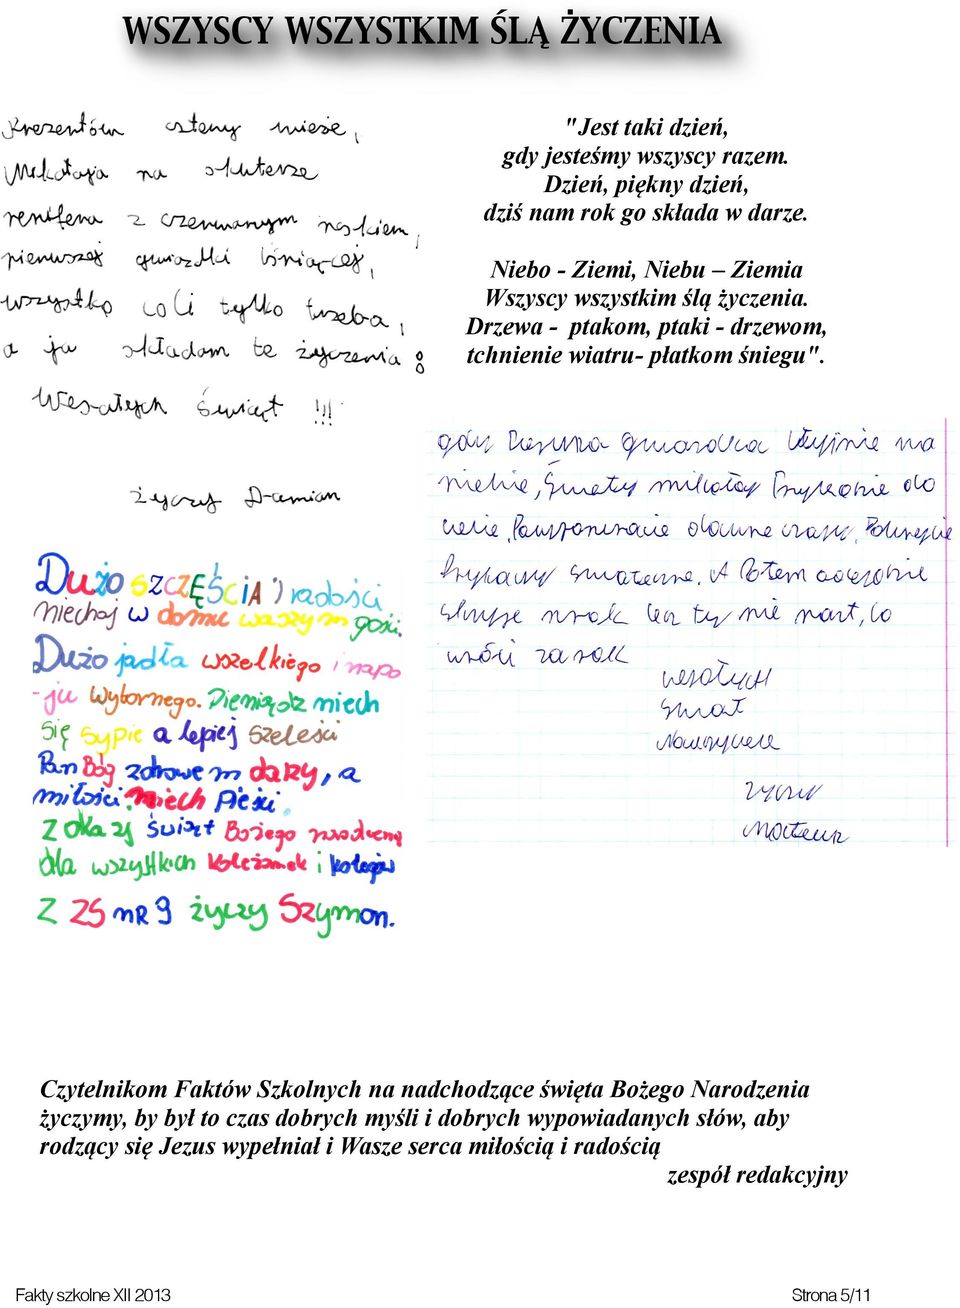 WSZYSCY WSZYSTKIM ŚLĄ ŻYCZENIA
Prezentów cztery wieże,
Mikołaja na skuterze
renifera z czerwonym noskiem,
pierwszej gwiazdki lśniącej,
wszystko co Ci tylko trzeba,
a ja składam te życzenia:
Wesołych Świąt !!!
życzy Damian
"Jest taki dzień,
gdy jesteśmy wszyscy razem.
Dzień, piękny dzień,
dziś nam rok go składa w darze.
Niebo - Ziemi, Niebu – Ziemia
Wszyscy wszystkim ślą życzenia.
Drzewa - ptakom, ptaki - drzewom,
tchnienie wiatru- płatkom śniegu".
gdy gwiazdka na
niebie, Święty mikołaj do
dawne czasy,
A Potem
mrok lecz ty nie mart, bo
wróci za rok
wesołych
Świat
życzy
Mateusz
DUŻO SZCZĘŚCIA i radości
niechaj w domu waszym gości.
Dużo jadła wszelkiego i napo
-ju wybornego. Pieniądz niech
się sypie a lepiej szeleści
Pan Bóg zdrowem darzy, a
miłości niech Pieści.
Z okazji świąt Bożego
dla wszystkich koleżanek i kolegów
Z ZS nR 9 życzy Szymon.
Czytelnikom Faktów Szkolnych na nadchodzące święta Bożego Narodzenia
życzymy, by był to czas dobrych myśli i dobrych wypowiadanych słów, aby
rodzący się Jezus wypełniał i Wasze serca miłością i radością
zespół redakcyjny
Fakty szkolne XII 2013
Strona 5/11